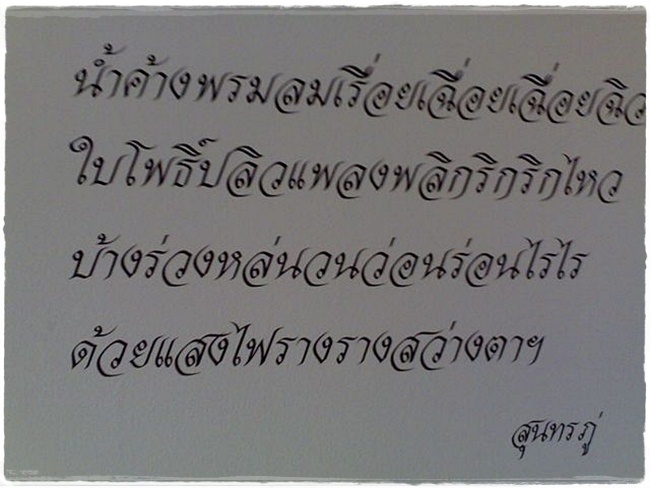 น้ำค้างพรมลมเรื่อยเฉื่อยเฉื่อยฉิว
ใบโพธิ์ปลิวแพลงพลิกริกริกไหว
บ้างร่วงหล่นวนว่อนร่อนไรไร
ด้วยแสงไฟรางรางสว่างตาฯ
สุนทรภู่